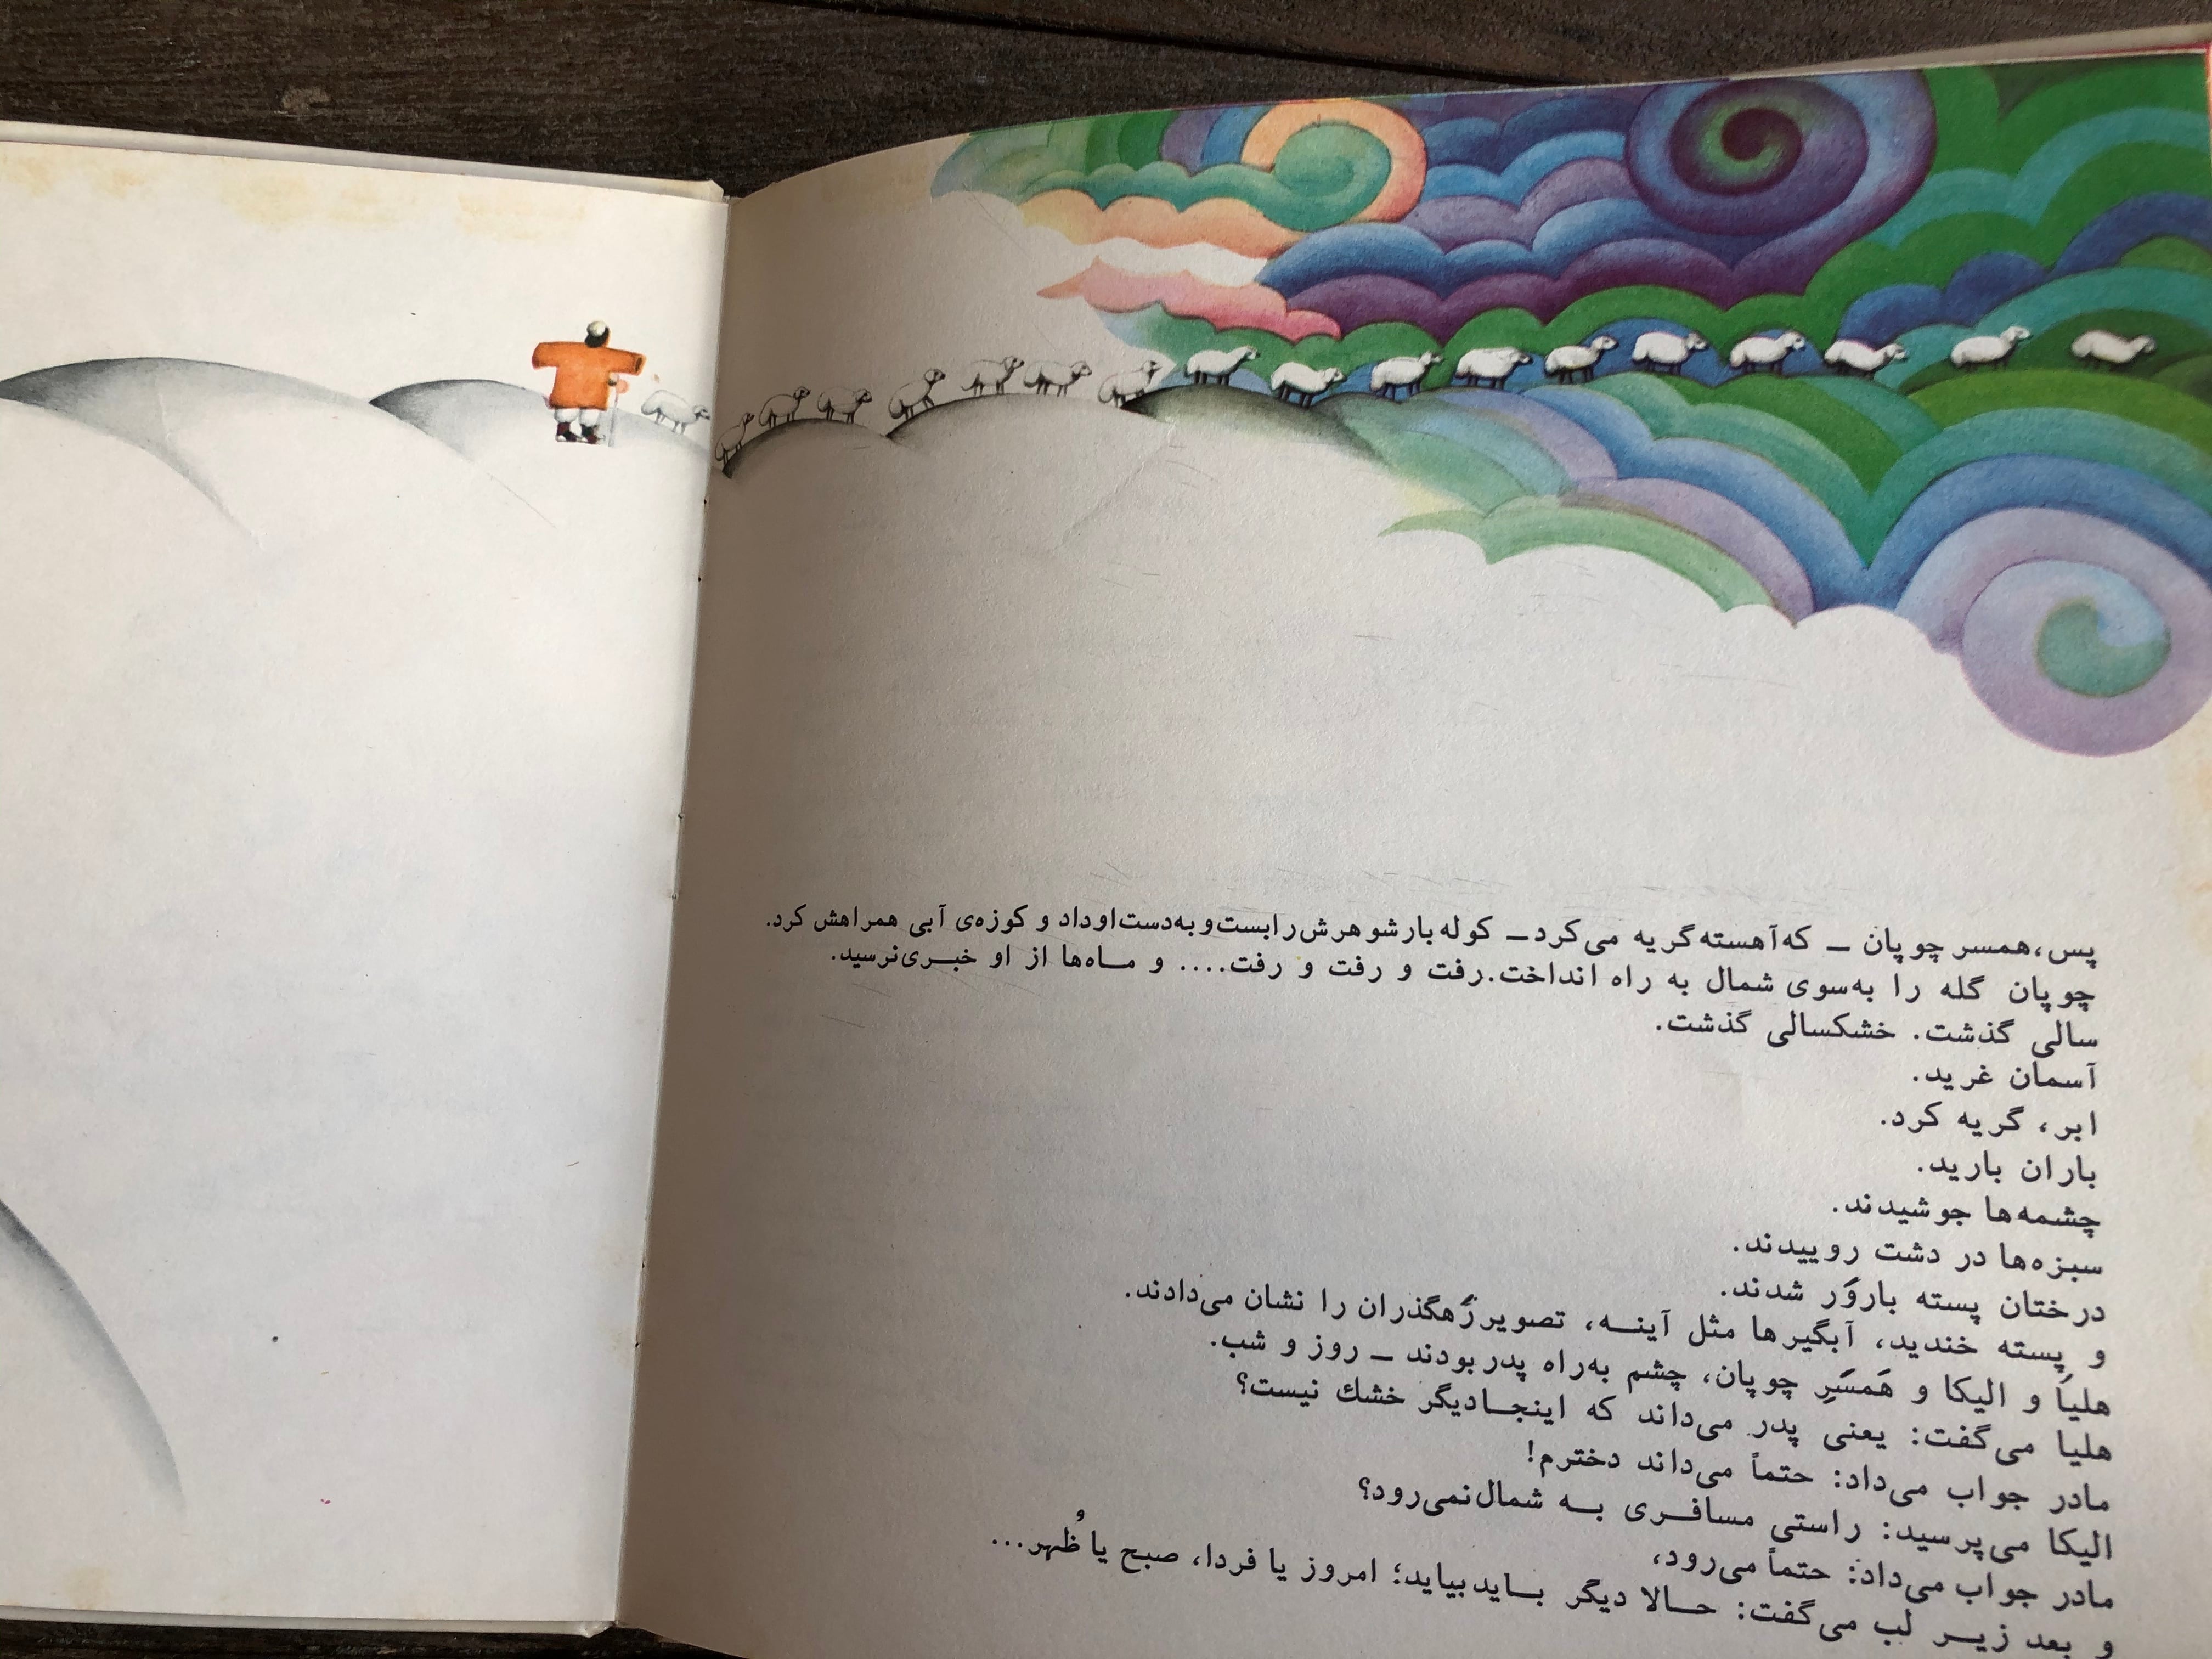 پس، همسر چوپان – که آهسته گریه می‌کرد – کوله بار شوهرش را بست و به دست او داد و کوزه‌ی آبی همراهش کرد.
چوپان گله را به‌سوی شمال به راه انداخت. رفت و رفت و رفت.... و ماه‌ها از او خبری نرسید.
سالی گذشت. خشکسالی گذشت.
آسمان غرید.
ابر، گریه کرد.
باران بارید.
چشمه‌ها جوشیدند.
سبزه‌ها در دشت روییدند.
درختان پسته باروَر شدند.
و پسته خندید، آبگیرها مثل آینه، تصویر رَهگذران را نشان می‌دادند.
هلیا و الیکا و هَمسَرِ چوپان، چشم به‌راه پدر بودند – روز و شب.
هلیا می‌گفت: یعنی پدر می‌داند که اینجا دیگر خشك نیست؟
مادر جواب می‌داد: حتماً می‌داند دخترم!
الیکا می‌پرسید: راستی مسافری به شمال نمی‌رود؟
مادر جواب می‌داد: حتماً می‌رود،
و بعد زیر لب می‌گفت: حالا دیگر باید بیاید؛ امروز یا فردا، صبح یا ظُهر...